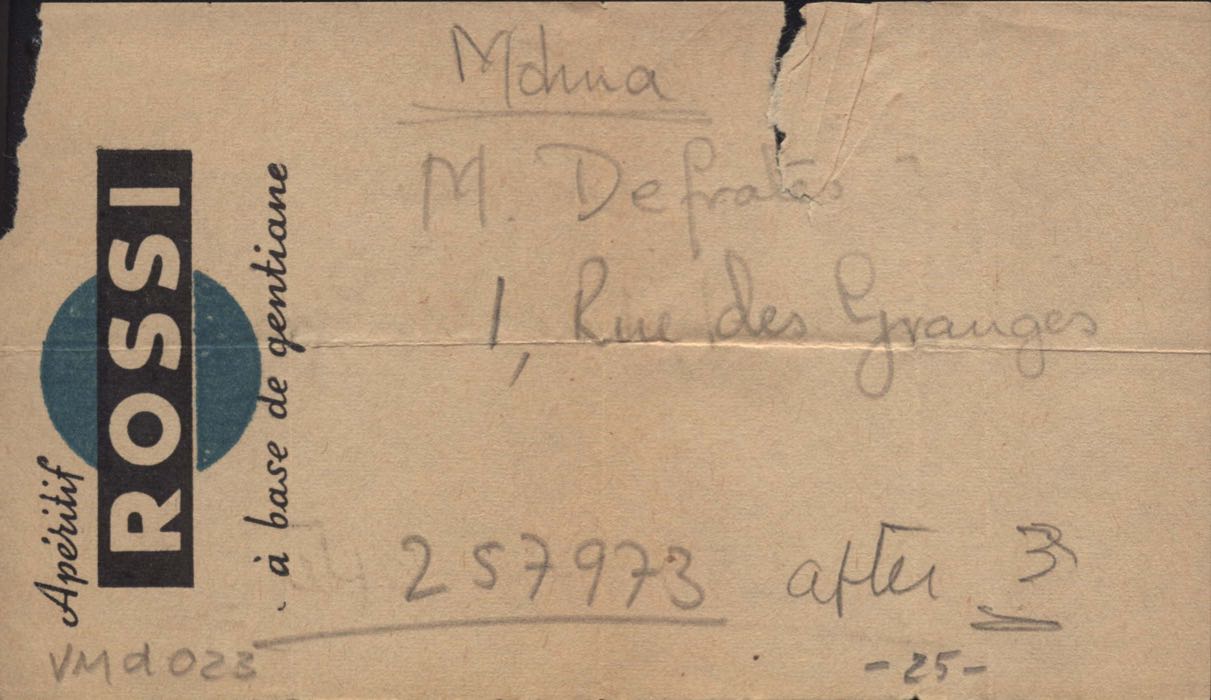 M. Defratès
1, Rue des Granges
257973 after 3
-25-
VMd023
Apéritif
ROSSI
à base de gentiane